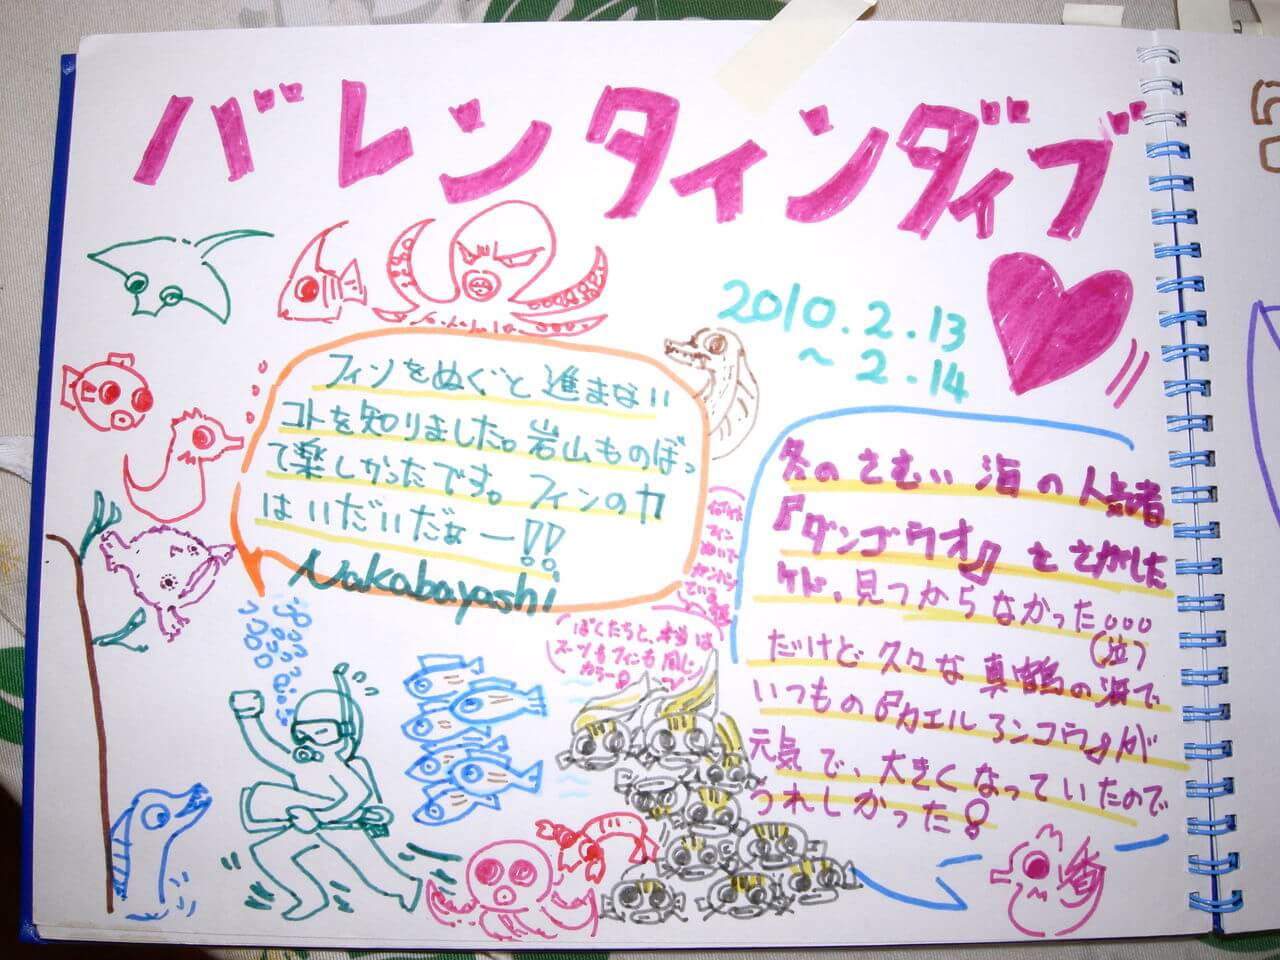 バレンタインダイブ
2010.2.13
~2.14
フィンをぬぐと進まない
コトを知りました。岩山ものぼっ
て楽しかったです。フィンの力
はいだいだぁー!!
Nakabayashi
ぼくたちと、本当は
スーツもフィンも同じ
カラー
冬のさむい海の人気者
『ダンゴウオ』をさがした
ケド、見つからなかった。。。
(泣)
だけど久々な真鶴の海で
いつもの『カエルアンコウ』が
元気で、大きくなっていたので
うれしかった!
香